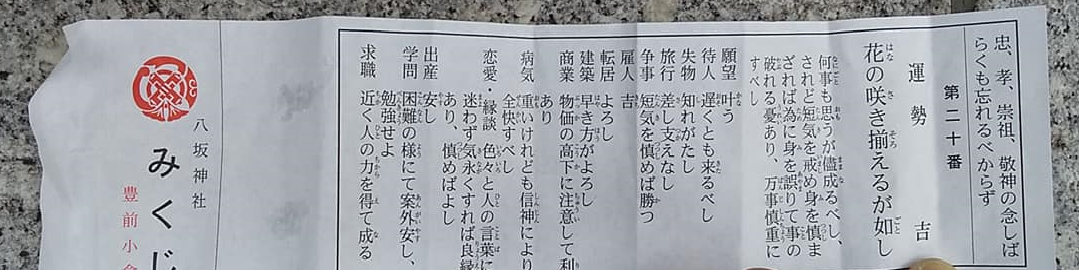 忠、孝、崇祖、敬神の念しば
らくも忘れるべからず
第二十番
運勢 吉
花の咲き揃えるが如し
何事も思うが儘成るべし、
されど短気を戒め身を慎ま
ざれば為に身を誤りて事の
破れる憂あり、万事慎重に
すべし
願望 叶う
待人 遅くとも来るべし
失物 知れがたし
旅行 差し支えなし
争事 短気を慎めば勝つ
雇人 吉
転居 よろし
建築 早き方がよろし
商業 物価の高下に注意して利
あり
病気 重いけれども信神により
全快すべし
恋愛・縁談 色々と人の言葉に
迷わず気永くすれば良縁
あり、慎めばよし
出産 安し
学問 困難の様にて案外安し、
勉強せよ
求職 近く人の力を得て成る
八坂神社
みくじ
豊前小倉